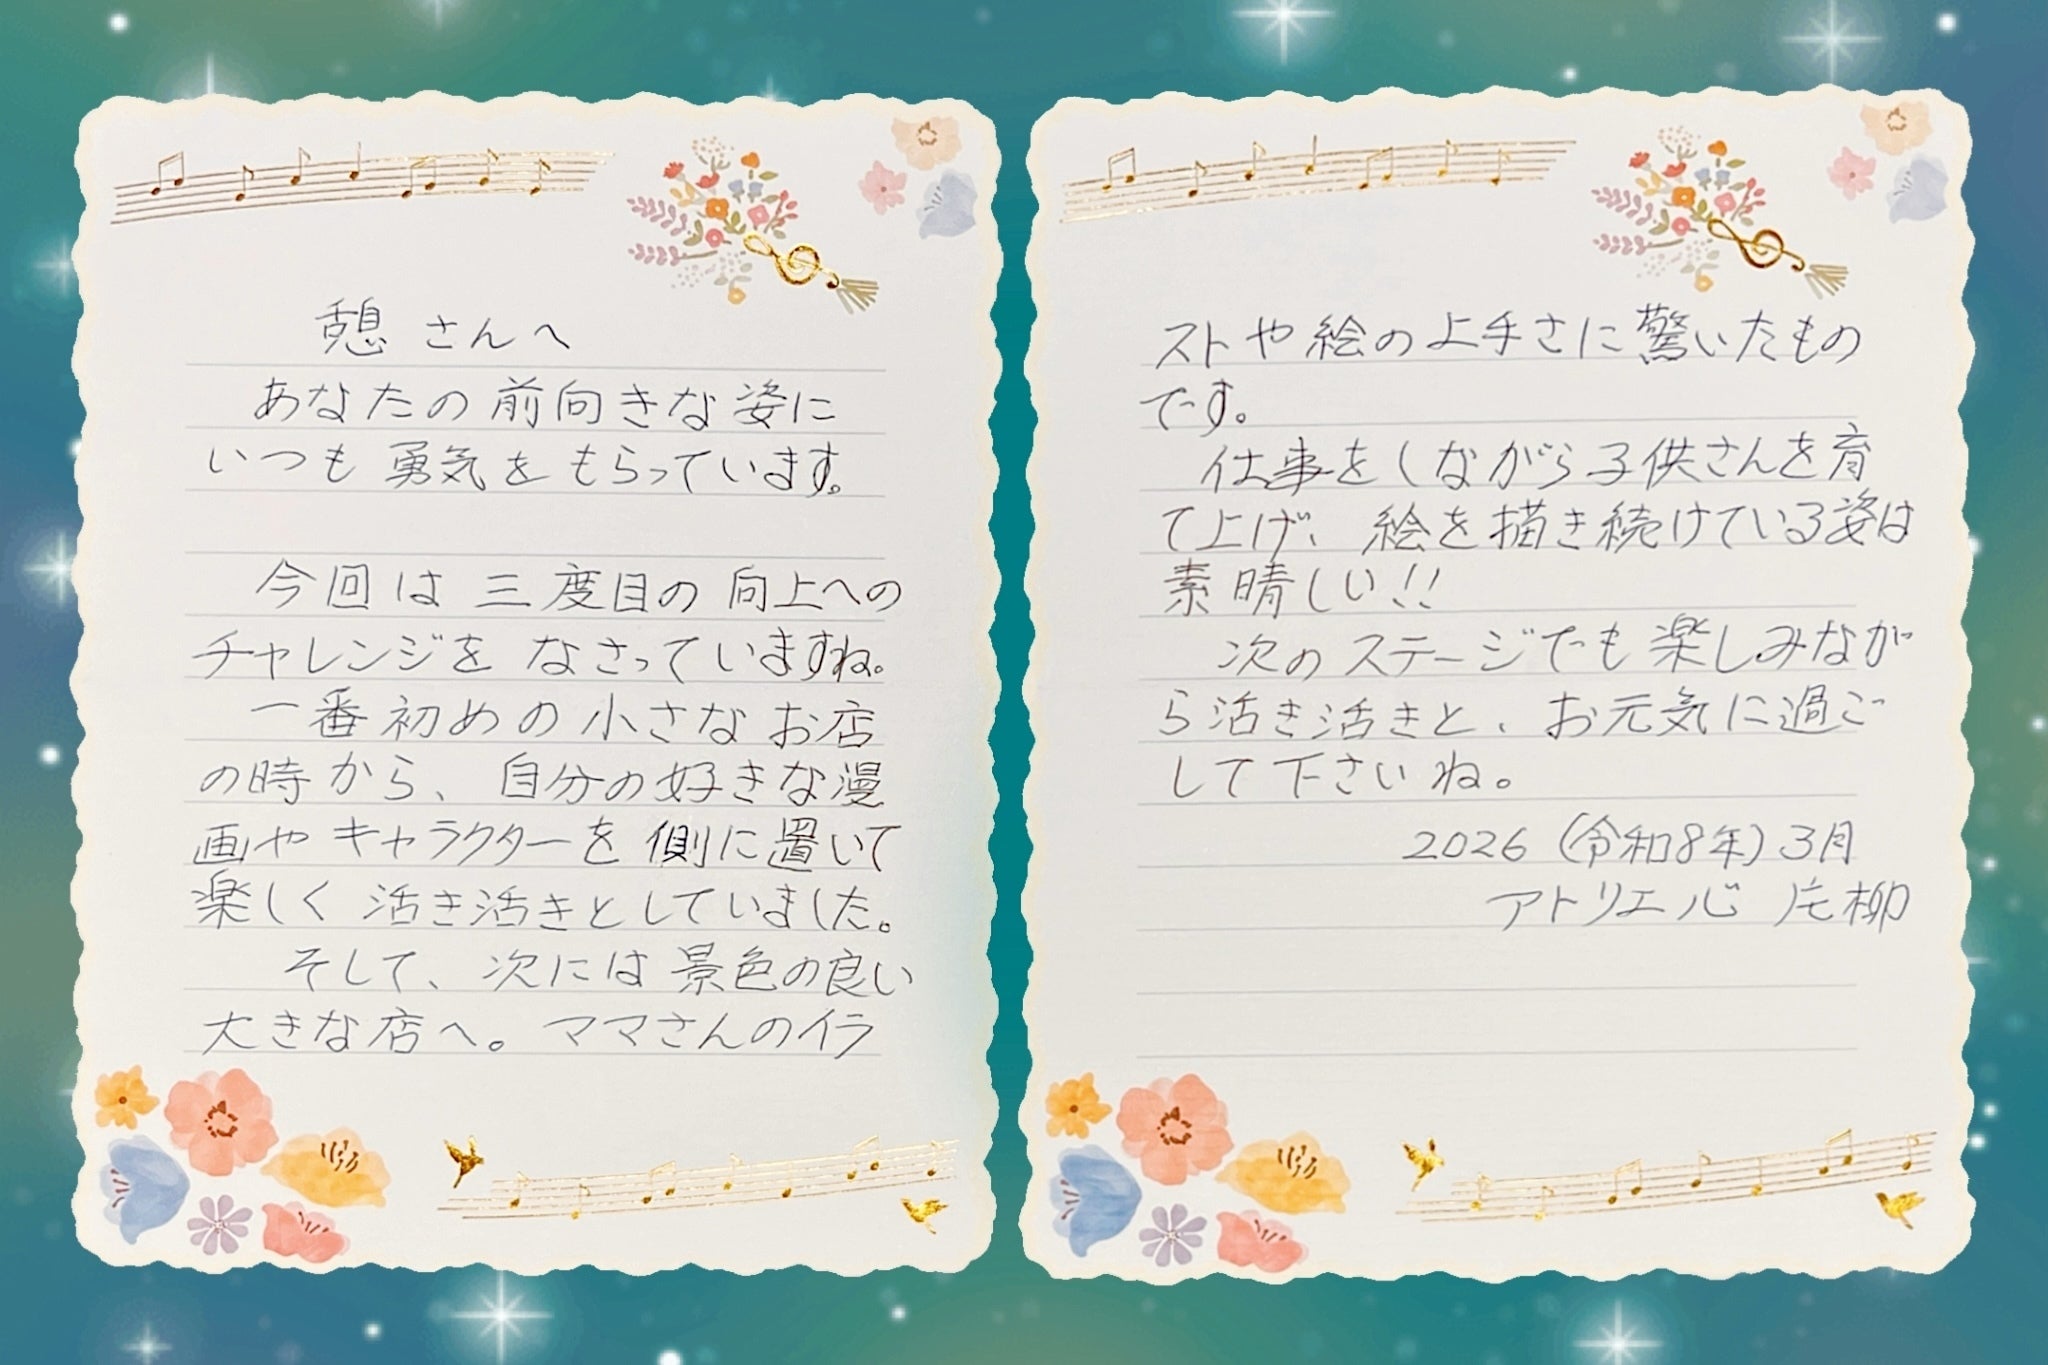 憩さんへ
あなたの前向きな姿に
いつも勇気をもらっています。
今回は三度目の向上への
チャレンジをなさっていますね。
一番初めの小さなお店
の時から、自分の好きな漫
画やキャラクターを側に置いて
楽しく活き活きとしていました。
そして、次には景色の良い
大きな店へ。ママさんのイラ
ストや絵の上手さに驚いたもの
です。
仕事をしながら子供さんを育
て上げ、絵を描き続けている姿は
素晴しい!!
次のステージでも楽しみなが
ら活き活きと、お元気に過ご
して下さいね。
2026(令和8年)3月
アトリエ心 柳